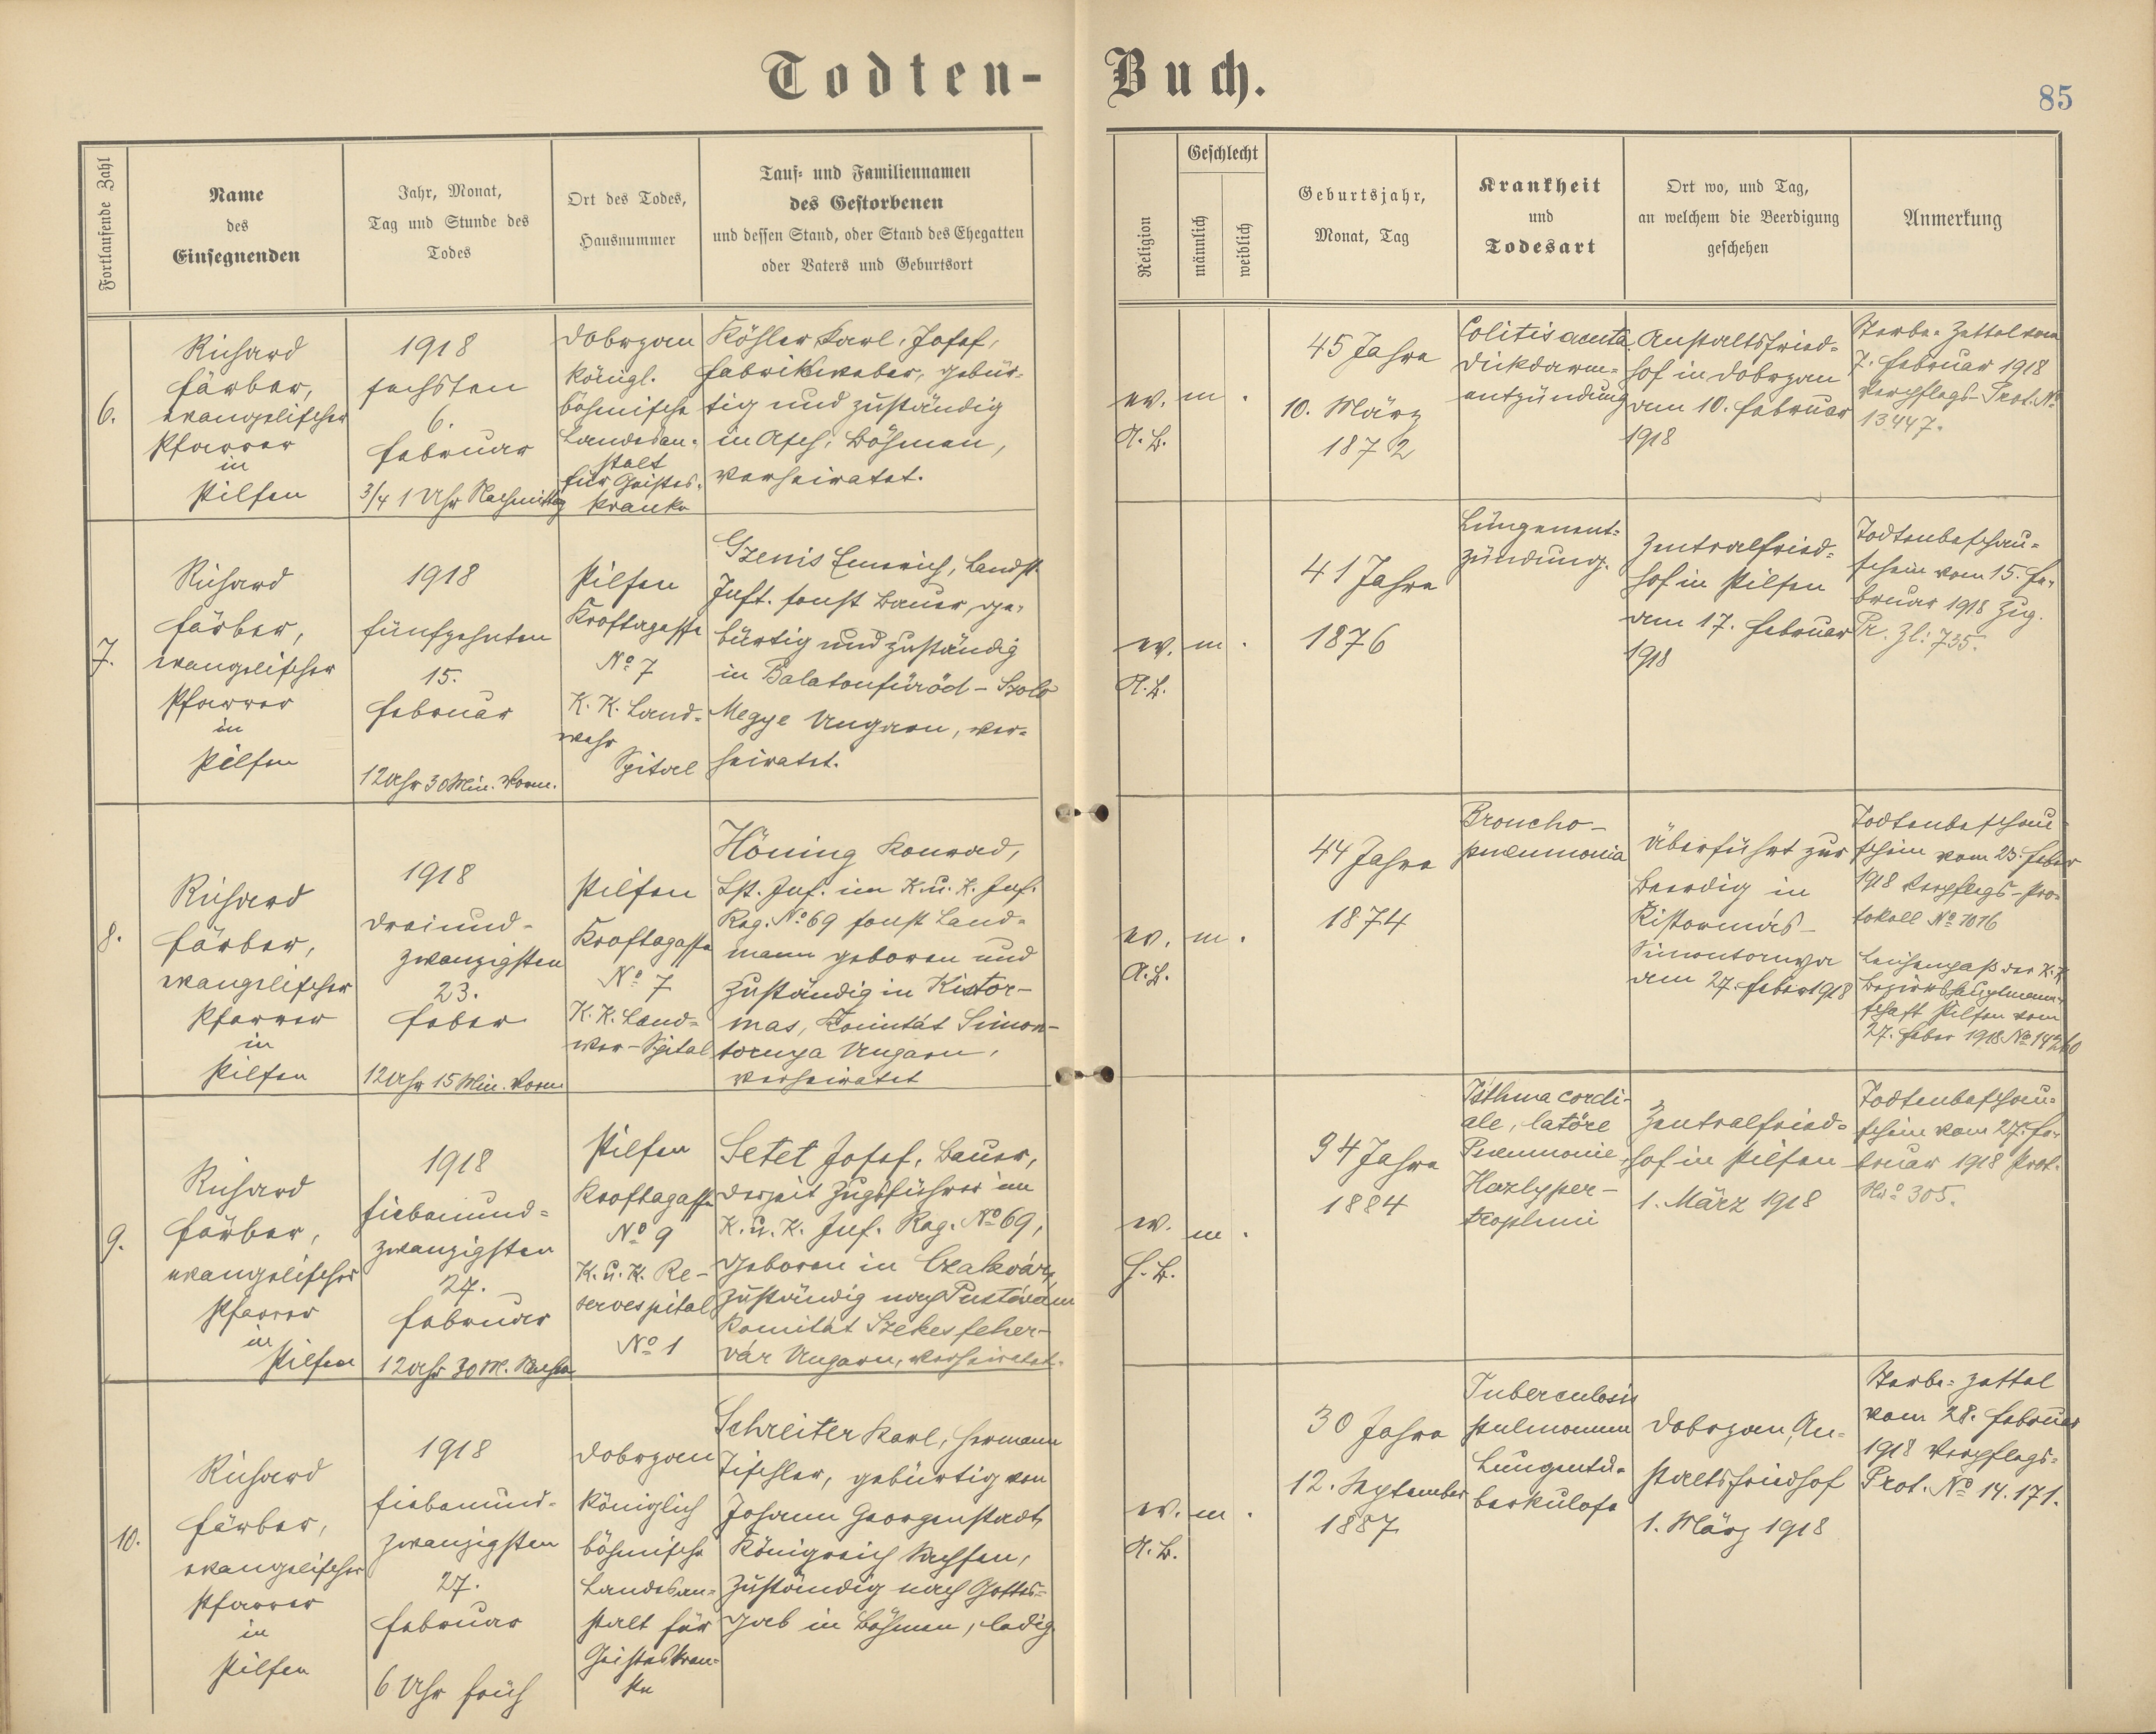 Todten-Buch.
85
Fortlaufende Zahl
Name
des
Einsegnenden
Jahr, Monat,
Tag und Stunde des
Todes
Ort des Todes,
Hausnummer
Tauf- und Familiennamen
des Gestorbenen
und dessen Stand, oder Stand des Ehegatten
oder Vaters und Geburtsort
Religion
Geschlecht
männlich
weiblich
Geburtsjahr,
Monat, Tag
Krankheit
und
Todesart
Ort wo, und Tag,
an welchem die Beerdigung
geschehen
Anmerkung
6.
Richard
Färber,
evangelischer
Pfarrer
in
Pilsen
1918
sechsten
6.
Februar
3/4 1 Uhr Nachmittag
Dobrzan
königl.
böhmische
Landesan-
stalt
für Geistes-
kranke
Köhler Karl, Josef,
Fabrikweber, gebür-
tig und zuständig
in Asch, Böhmen,
verheiratet.
ev.
A.B.
m.
45 Jahre
10. März
1872
Colitis acuta
Dickdarm-
entzündung
Anstaltsfried-
hof in Dobrzan
am 10. Februar
1918
Sterbe-Zettel vom
7. Februar 1918
Verpflegs-Prot. No
13447.
7.
Richard
Färber,
evangelischer
Pfarrer
in
Pilsen
1918
fünfzehnten
15.
Februar
12 Uhr 30 Min. Vorm.
Pilsen
Kroftagasse
No 7
K. K. Land-
wehr
Spital
Gzenis Emerich, Landst.
Inft. sonst Bauer, ge-
bürtig und zuständig
in Balatonfüröd-
Megye Ungarn, ver-
heiratet.
ev.
A.B.
m.
41 Jahre
1876
Lungenent-
zündung.
Zentralfried-
hof in Pilsen
am 17. Februar
1918
Todtenbeschau-
schein vom 15. Fe-
bruar 1918 Zug.
Pr. Zl: 735.
8.
Richard
Färber,
evangelischer
Pfarrer
in
Pilsen
1918
dreiund-
zwanzigsten
23.
Feber
12 Uhr 15 Min. Vorm
Pilsen
Kroftagasse
No 7
K. K. Land-
wer-Spital
Höning Konrad,
Lst. Inf. im K. u. K. Inf.
Reg. No 69 sonst Land-
mann geboren und
zuständig in Kistor-
mas, Komität Simon-
tornya Ungarn,
verheiratet
ev.
A.B.
m.
44 Jahre
1874
Broncho-
pneumonia
Überführt zur
Beerdig in
Kistormás-
Simontornya
am 27. Feber 1918
Todtenbeschau-
schein vom 23. Feber
1918 Verpflegs-Pro-
tokoll No 1016
Leichenpaß der K. K.
Bezirkshauptmann-
schaft Pilsen vom
27. Feber 1918 No 14260
9.
Richard
Färber,
evangelischer
Pfarrer
in
Pilsen
1918
siebenund-
zwanzigsten
27.
Februar
12 Uhr 30 M. Nachm
Pilsen
Kroftagasse
No 9
K. u. K. Re-
servespital
No 1
Setet Josef, Bauer,
derzeit Zugsführer im
K. u. K. Inf. Reg. No 69,
geboren in Czakvár,
zuständig nach Pustavám
Komität Szekesfeher-
vár Ungarn, verheiratet.
ev.
H.B.
m.
34 Jahre
1884
Asthma cordi-
ale, latöre
Pneumonie,
Herzhyper-
trophmi
Zentralfried-
hof in Pilsen
1. März 1918
Todtenbeschau-
schein vom 27. Fe-
bruar 1918 Prot.
Nro 305.
10.
Richard
Färber,
evangelischer
Pfarrer
in
Pilsen
1918
siebenund-
zwanzigsten
27.
Februar
6 Uhr früh
Dobrzan
Königlich
böhmische
Landesan-
stalt für
Geisteskran-
ke
Schreiter Karl, Hermann
Tischler, gebürtig von
Johann Georgenstadt,
Königreich Sachsen,
zuständig nach Gottes-
gab in Böhmen, ledig.
ev.
A.B.
m.
30 Jahre
12. September
1887
Tuberculosis
pulmonum
Lungentu-
berkulose
Dobrzan, An-
staltsfriedhof
1. März 1918
Sterbe-Zettel
vom 28. Februar
1918 Verpflegs-
Prot. No 14.171.